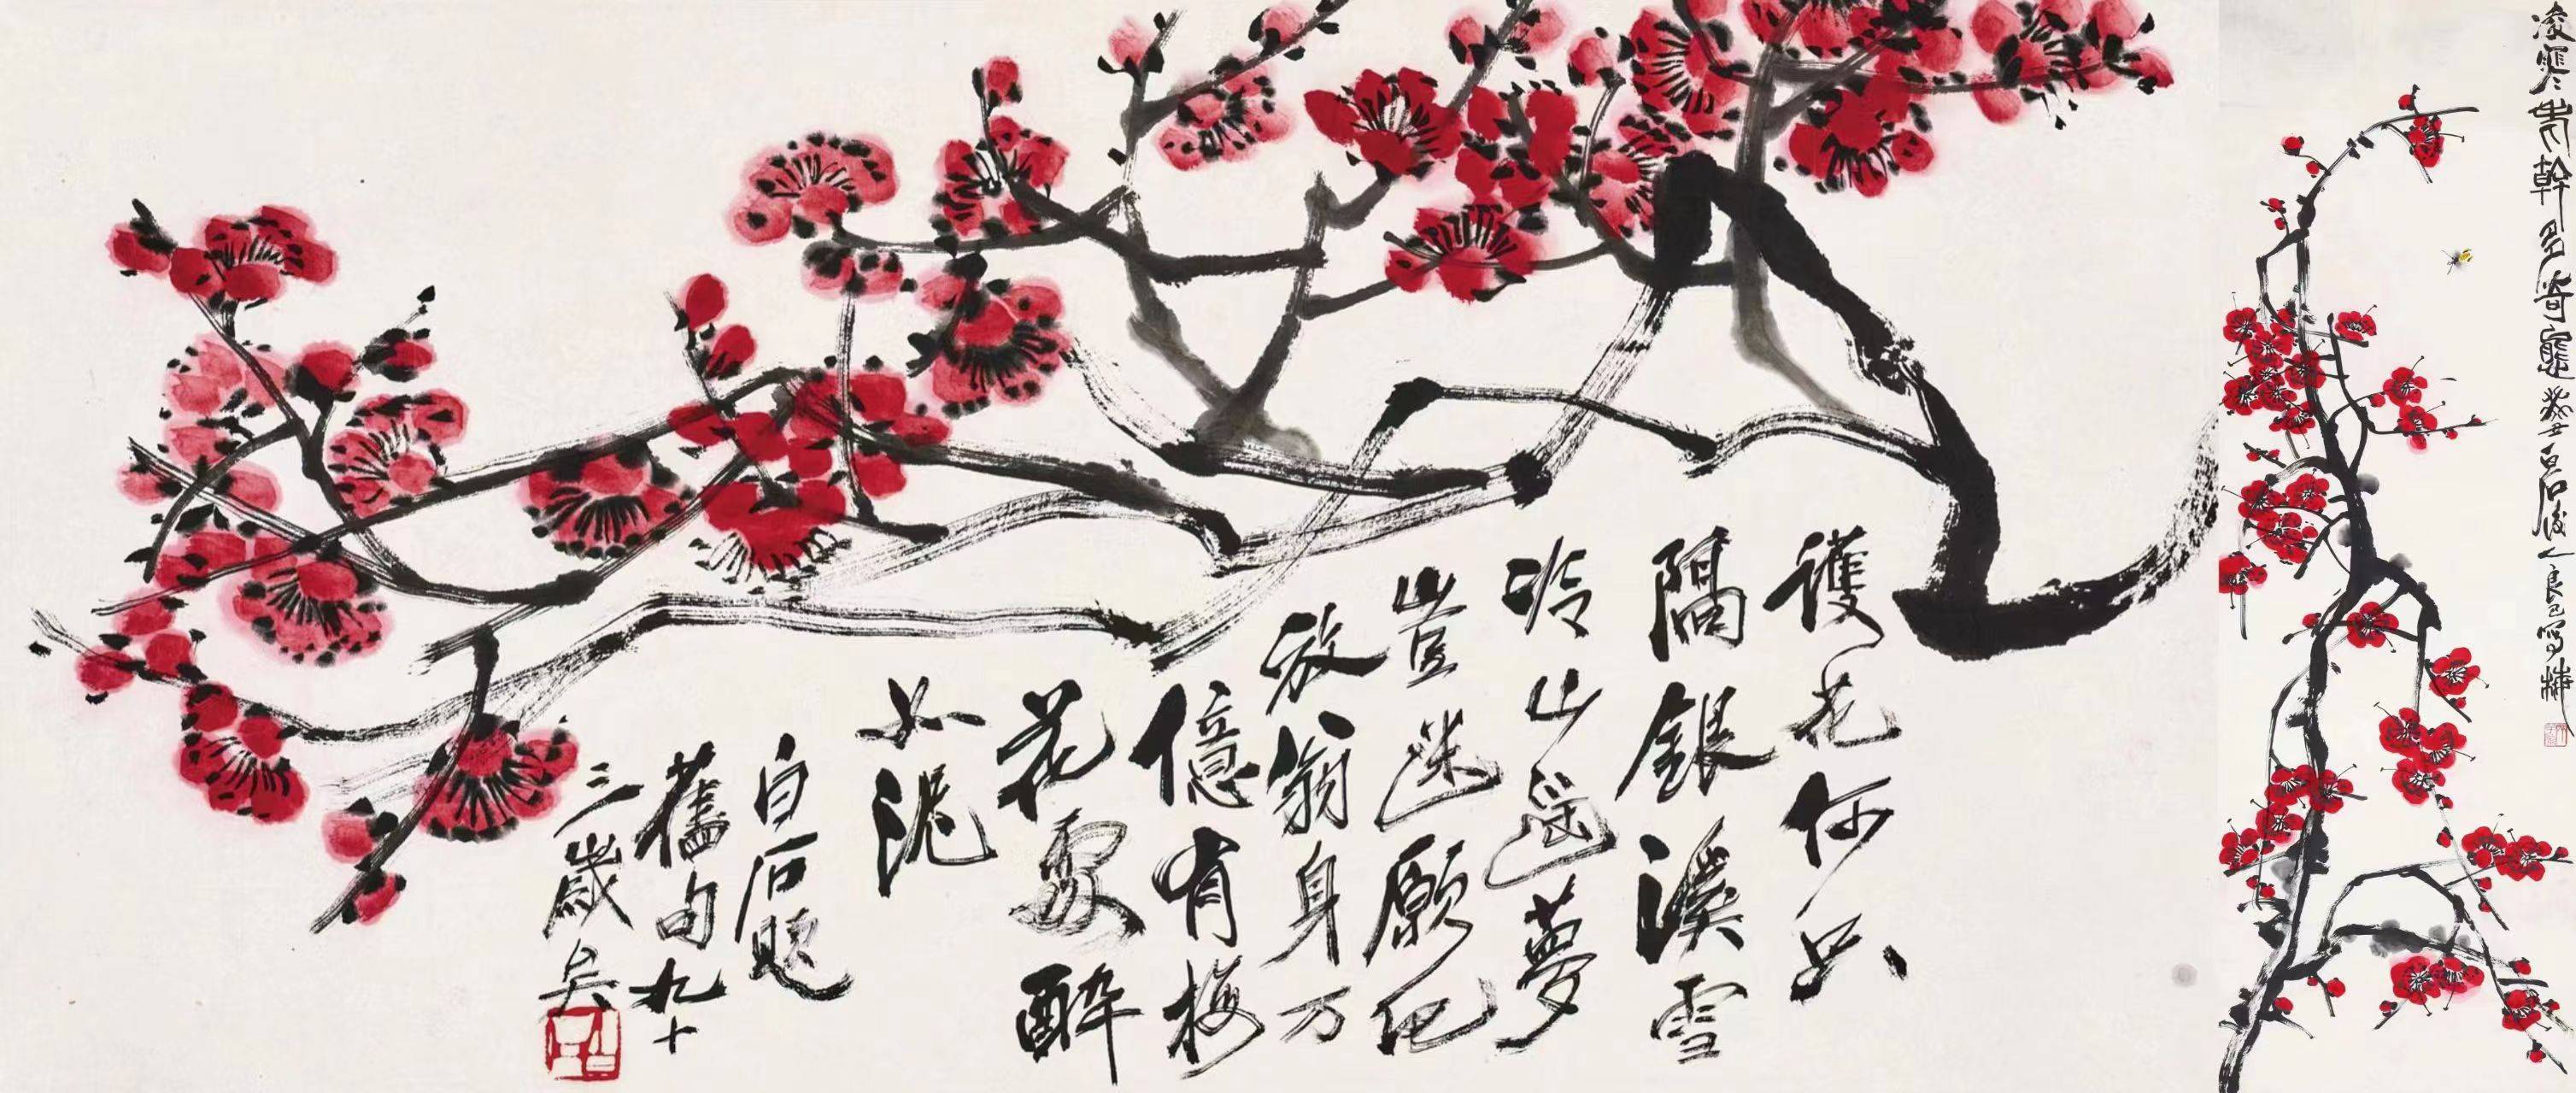 護花何只
隔銀溪雪
冷山遥夢
豈迷願化
放翁身万
億有梅
花處醉
如泥
白石題
舊句九十
三歲矣
白石
凌寒幹多奇癸丑白石後人良已寫梅